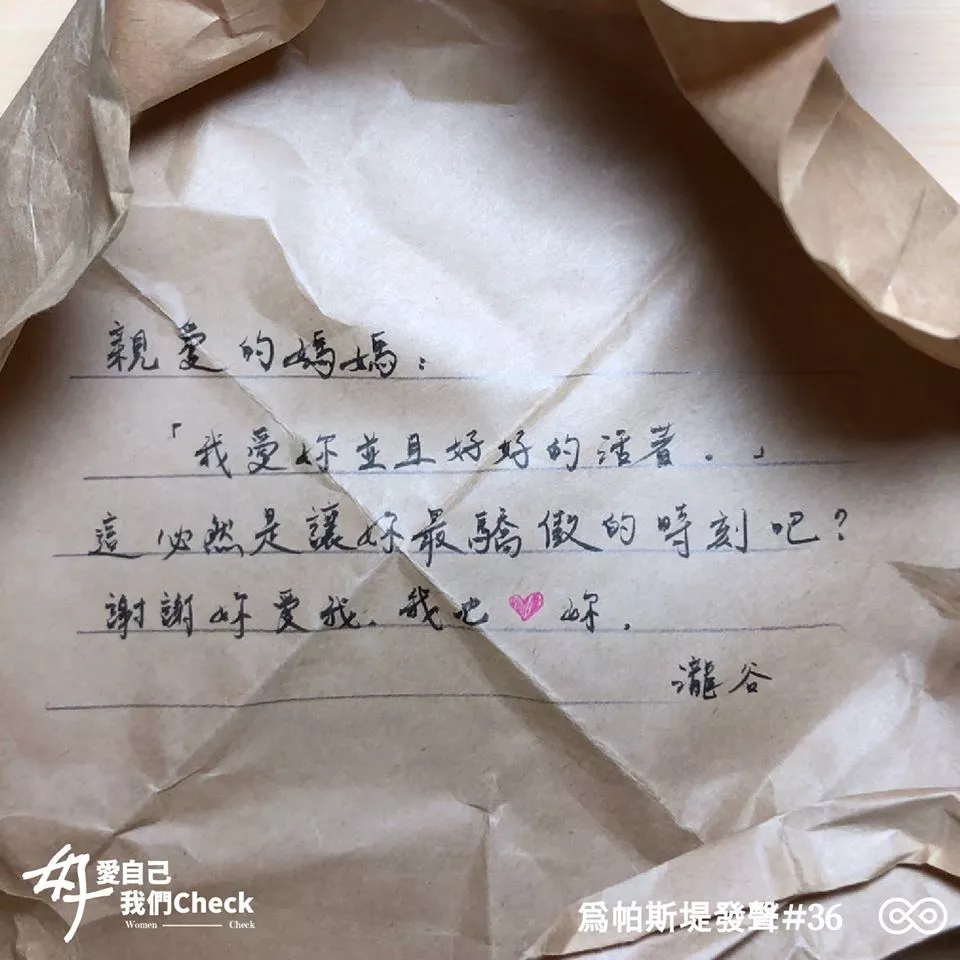 親愛的媽媽：
「我愛妳並且好好的活著。」
這必然是讓妳最驕傲的時刻吧？
謝謝妳愛我。我也♥妳。
瀧谷
好愛自己
我們Check
Women Check
為帕斯堤發聲#36